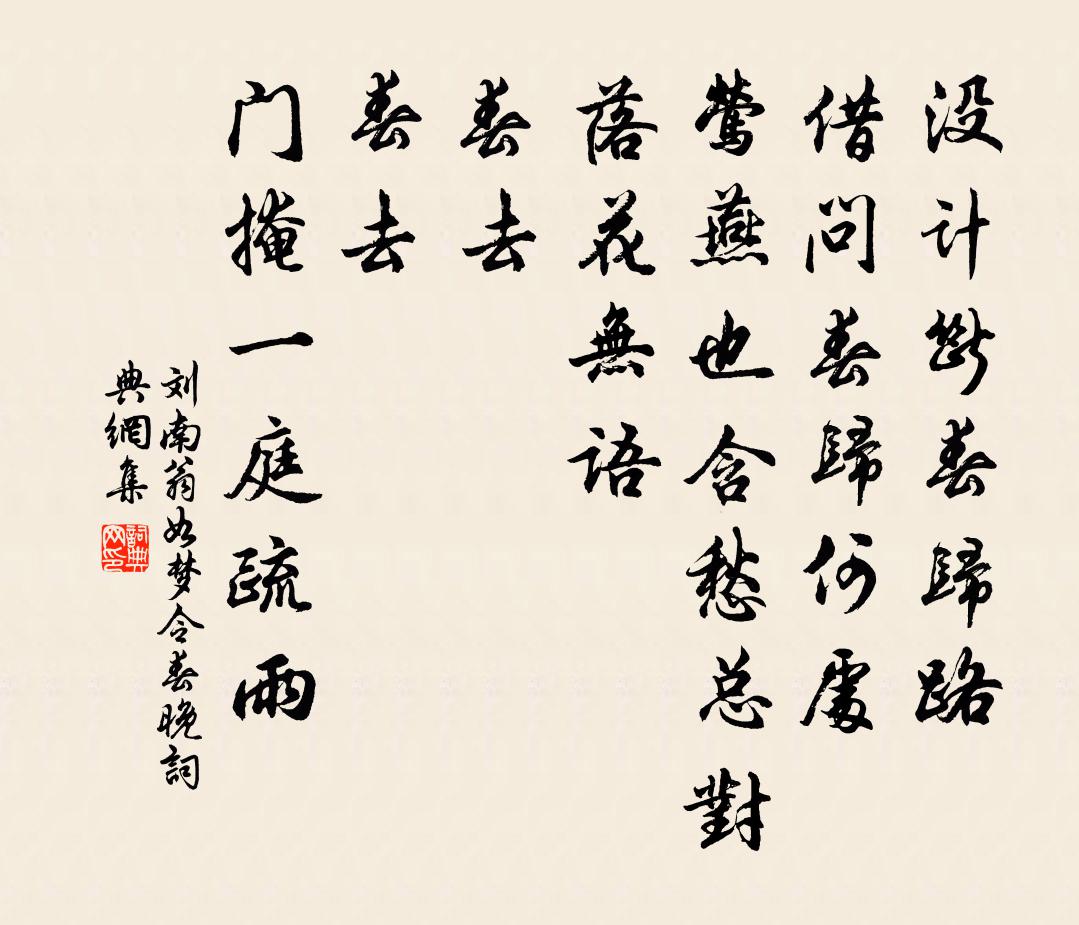 没计断春歸路
借问春歸何處
莺燕也含愁总對
落花無语
春去
春去
门掩一庭疏雨
刘南翁如梦令春晚詞
典網集
詞典
网印